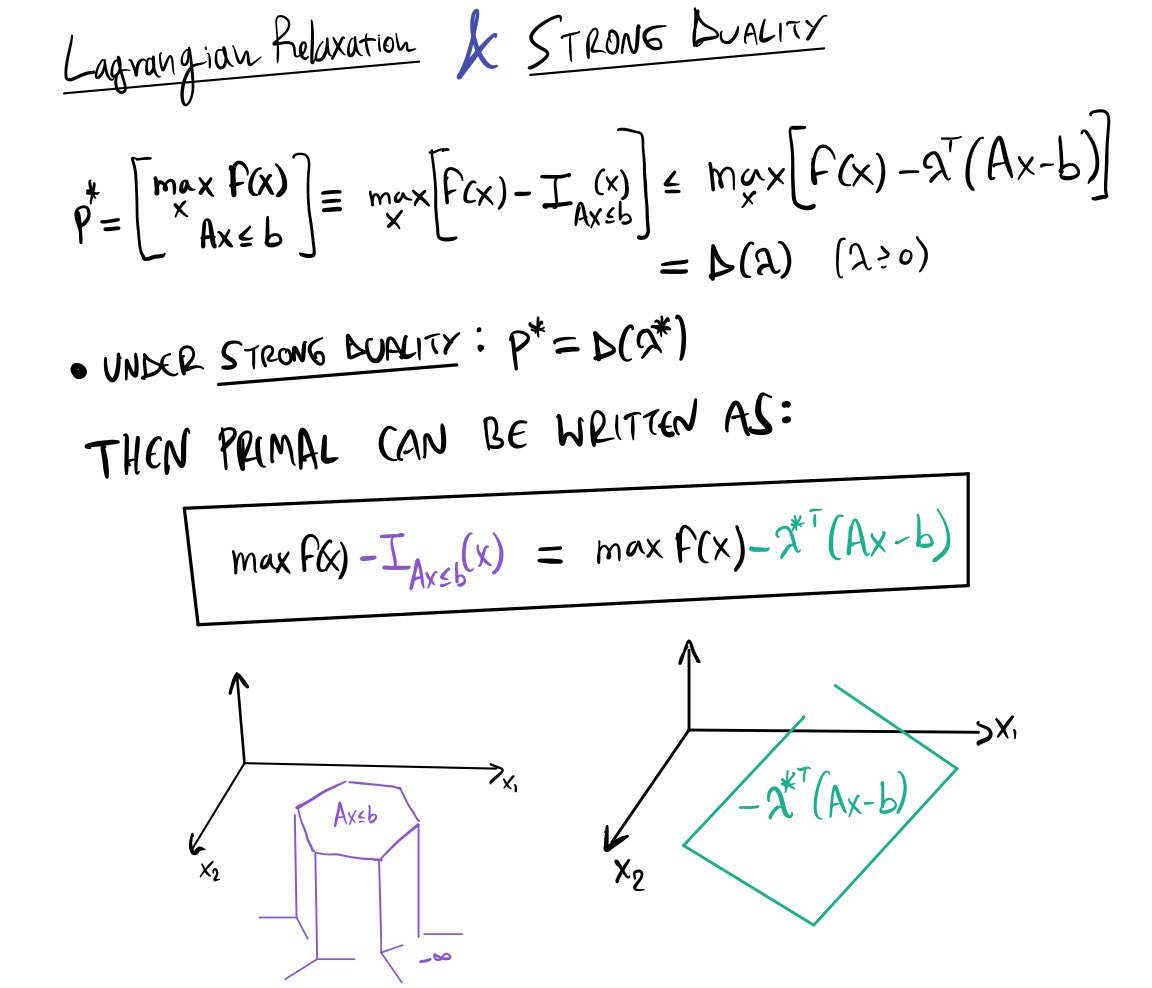 Lagrangian Relaxation & STRONG DUALITY
P* = [max_x f(x) Ax ≤ b] ≡ max_x [f(x) - I_{Ax≤b}(x)] ≤ max_x [f(x) - λ^T(Ax-b)]
= D(λ) (λ ≥ 0)
• UNDER STRONG DUALITY: P* = D(λ*)
THEN PRIMAL CAN BE WRITTEN AS:
max f(x) - I_{Ax≤b}(x) = max f(x) - λ*^T(Ax-b)
x₁
x₂
Ax≤b
-∞
x₁
x₂
-λ*^T(Ax-b)